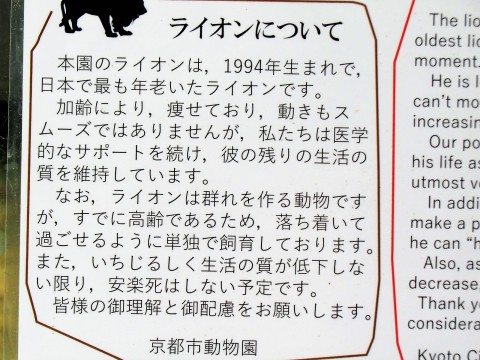 ライオンについて
本園のライオンは，1994年生まれで，
日本で最も年老いたライオンです。
加齢により，痩せており，動きもス
ムーズではありませんが，私たちは医学
的なサポートを続け，彼の残りの生活の
質を維持しています。
なお，ライオンは群れを作る動物です
が，すでに高齢であるため，落ち着いて
過ごせるように単独で飼育しております。
また，いちじるしく生活の質が低下しな
い限り，安楽死はしない予定です。
皆様の御理解と御配慮をお願いします。
京都市動物園
The lio
oldest lio
moment.
He is l
can't mo
increasin
Our po
his life as
utmost ve
In addi
make a p
he can "h
Also, as
decrease,
Thank yo
considera
Kyoto C